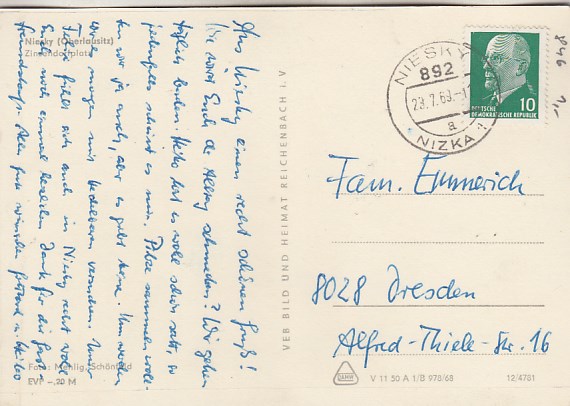 Niesky (Oberlausitz)
Zinzendorfplatz
Aus Niesky einen recht schönen Gruß!
Wie wird Euch der Alltag schmecken? Wir gehen
täglich baden. Heiko hat es wohl schon satt, so
jedenfalls scheint es mir. Pilze sammeln woll-
ten wir ja auch, aber es geht keine. Nun werden
wir's morgen mit Heidelbeeren versuchen. Unser
fühlt sich auch in Niesky recht wohl.
Euch noch einmal herzlichen Dank für die Gast-
freundschaft. Alles Gute wünschen
Foto: Mehlig, Schönfeld
EVP -,20 M
VEB BILD UND HEIMAT REICHENBACH I. V
NIESKY
892
23.7.69.-1
a
NIZKA
10
DEUTSCHE
DEMOKRATISCHE REPUBLIK
846
1,-
Fam. Emmerich
8028 Dresden
Alfred-Thiele-Str. 16
V 11 50 A 1/B 978/68
12/4781